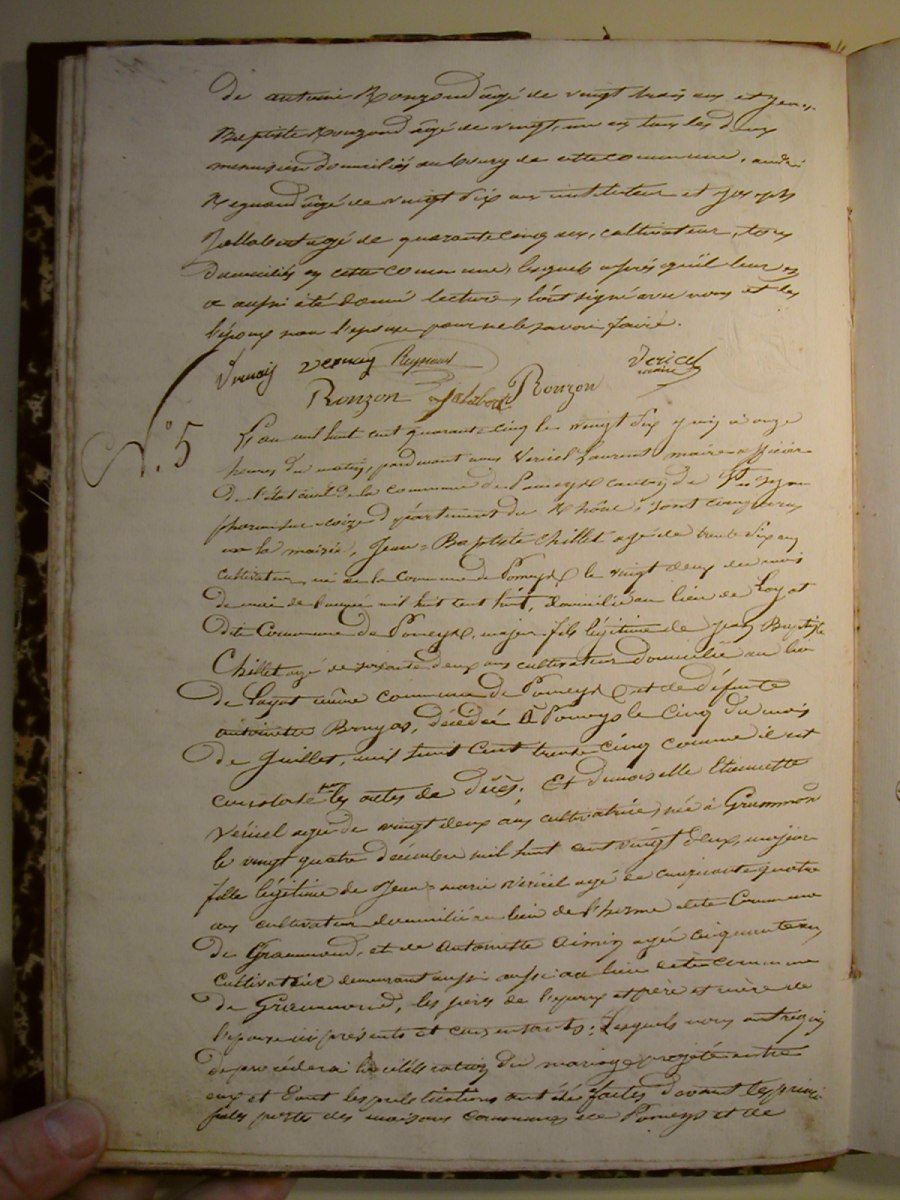 De antoine Ronzond âgé de vingt trois ans et Jean
Baptiste Ronzond âgé de vingt un ans tous les deux
menuisiers domiciliés au bourg de cette commune, andré
Reynaud âgé de vingt six ans instituteur et Joseph
Jallabert agé de quarante cinq ans, cultivateur, tous
domiciliés en cette commune, lesquels après qu'il leur en
a aussi été donné lecture, l'ont signé avec nous et les
l'époux non l'epouse pour ne le savoir faire.
vernay Reynaud Vericel
maire
Ronzon Jalabert Ronzon
N.° 5
L'an mil huit cent quarante cinq le vingt six juin à onze
heures du matin, pardevant nous Vericel Laurent maire officier
De l'état civil de la commune de Pomeys canton de St Sym
phorien sur coize Département du Rhône, sont comparus
en la mairie, Jean=Baptiste Chillet agé de trente six ans
cultivateur, né en la commune de Pomeys le vingt deux du mois
De mai de l'année mil huit cent huit, domicilié au lieu de Loyat
Dite Commune de Pomeys, majeur, fils légitime de Jean Baptiste
Chillet agé de soixante deux ans cultivateur domicilié au lieu
De Layat même commune de Pomeys et de Défunte
antoinette Bruyas, décédée à Pomeys le Cinq du mois
De Juillet, mil huit Cent trente cinq comme il est
constaté les actes de Décès. Et Demoiselle Etiennette
Véricel agée de vingt deux ans cultivatrice, née à Grammon
le vingt quatre décembre mil huit cent vingt deux, majeur
fille légitime de Jean=marie Vericel agé de cinquante quatre
ans cultivateur domicilié au lieu de l'herme dite Commune
De Grammond, et de Antoinette agée cinquante ans
cultivatrice demeurant aussi au lieu dite commune
De Grammond, les père de l'époux et père et mère de
l'épouse ici présents et consentants; Lesquels nous ont requis
de procéder à la célébration du mariage projeté entre
eux et Dont les publications ont été faites devant les princi
pales porte des maisons communes de Pomeys et de